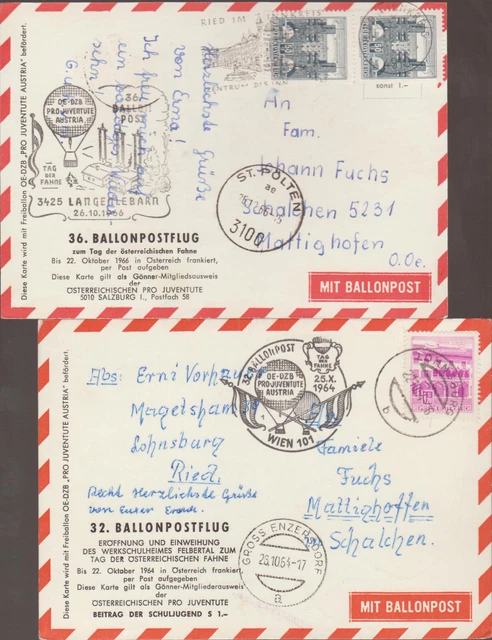 Diese Karte wird mit Freiballon OE-DZB „PRO JUVENTUTE AUSTRIA" befördert.
RIED IM
ZENTRUM DER
sonst 1.—
Herzlichste Grüße
von Erna!
Ich freue mich auf
ein
36.
BALLON
POST
OE-DZB
PRO JUVENTUTE
AUSTRIA
TAG
DER
FAHNE
3425 LANGENLEBARN
26.10.1966
An
Fam.
Johann Fuchs
Schalchen 5231
Mattighofen
O.Oe.
ST. PÖLTEN
3100
36. BALLONPOSTFLUG
zum Tag der österreichischen Fahne
Bis 22. Oktober 1966 in Österreich frankiert,
per Post aufgeben
Diese Karte gilt als Gönner-Mitgliedsausweis
der
ÖSTERREICHISCHEN PRO JUVENTUTE
5010 SALZBURG I., Postfach 58
MIT BALLONPOST
Diese Karte wird mit Freiballon OE-DZB „PRO JUVENTUTE AUSTRIA" befördert.
32. BALLONPOST
TAG
DER
FAHNE
25.X.
1964
OE-DZB
PRO JUVENTUTE
AUSTRIA
WIEN 101
Abs: Erni
Lohnsburg
Ried
Recht Herzlichste Grüße
von Eurer
Familie
Fuchs
Mattighoffen
in Schalchen.
GROSS ENZERSDORF
26.10.64-17
a
32. BALLONPOSTFLUG
ERÖFFNUNG UND EINWEIHUNG
DES WERKSCHULHEIMES FELBERTAL ZUM
TAG DER ÖSTERREICHISCHEN FAHNE
Bis 22. Oktober 1964 in Österreich frankiert,
per Post aufgegeben
Diese Karte gilt als Gönner-Mitgliederausweis
der
ÖSTERREICHISCHEN PRO JUVENTUTE
BEITRAG DER SCHULJUGEND S 1.—
MIT BALLONPOST